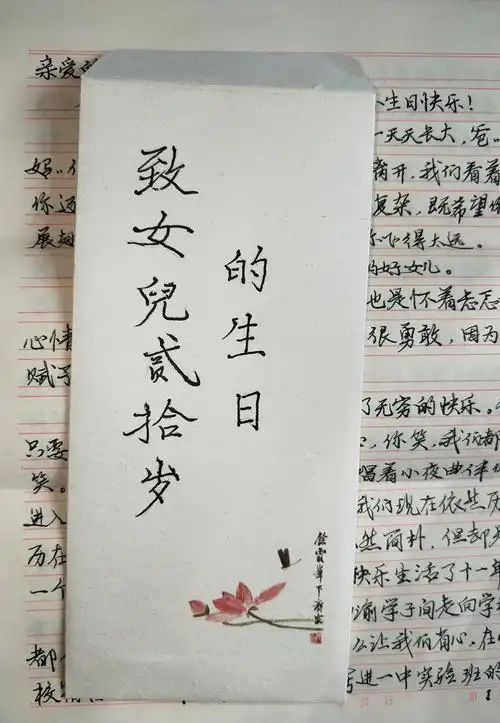 致女兒贰拾岁
的生日
亲爱的
生日快乐！
一天天长大，爸
妈 离开，我们看着
你还 复杂，既希望你
展翅 你飞得太远。
的好女儿。
也是怀着忐忑
心情 很勇敢，因为
赋予
了无穷的快乐。
只要 你笑，我们都
笑。 唱着小夜曲伴
进入 我们现在依然历
历在 然简朴，但却充
一个 快乐生活了十一年
学子间走向学
都 么让我们省心，在
校 进一中实验班的